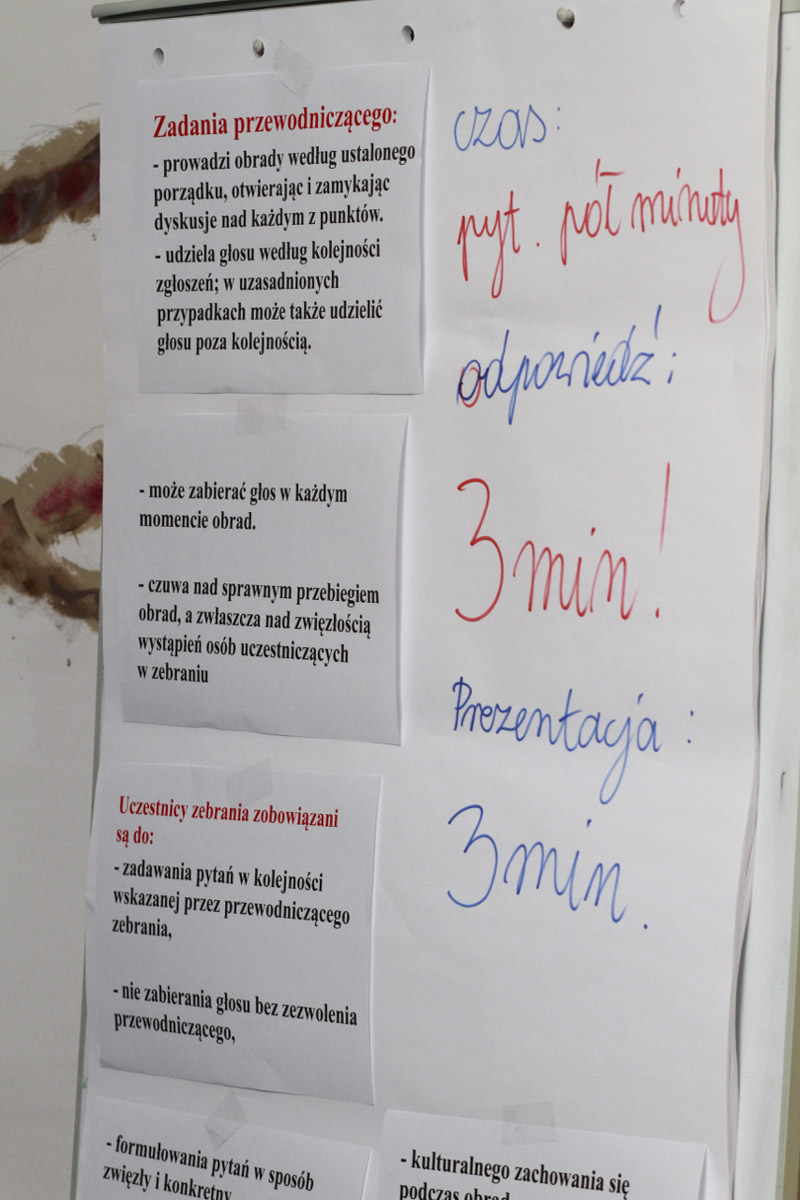 Zadania przewodniczącego:
- prowadzi obrady według ustalonego
porządku, otwierając i zamykając
dyskusje nad każdym z punktów.
- udziela głosu według kolejności
zgłoszeń; w uzasadnionych
przypadkach może także udzielić
głosu poza kolejnością.
- może zabierać głos w każdym
momencie obrad.
- czuwa nad sprawnym przebiegiem
obrad, a zwłaszcza nad zwięzłością
wystąpień osób uczestniczących
w zebraniu
Uczestnicy zebrania zobowiązani
są do:
- zadawania pytań w kolejności
wskazanej przez przewodniczącego
zebrania,
- nie zabierania głosu bez zezwolenia
przewodniczącego,
- formułowania pytań w sposób
zwięzły i konkretny
- kulturalnego zachowania się
podczas obrad
czas:
pyt. pół minuty
odpowiedź:
3 min!
Prezentacja:
3 min.